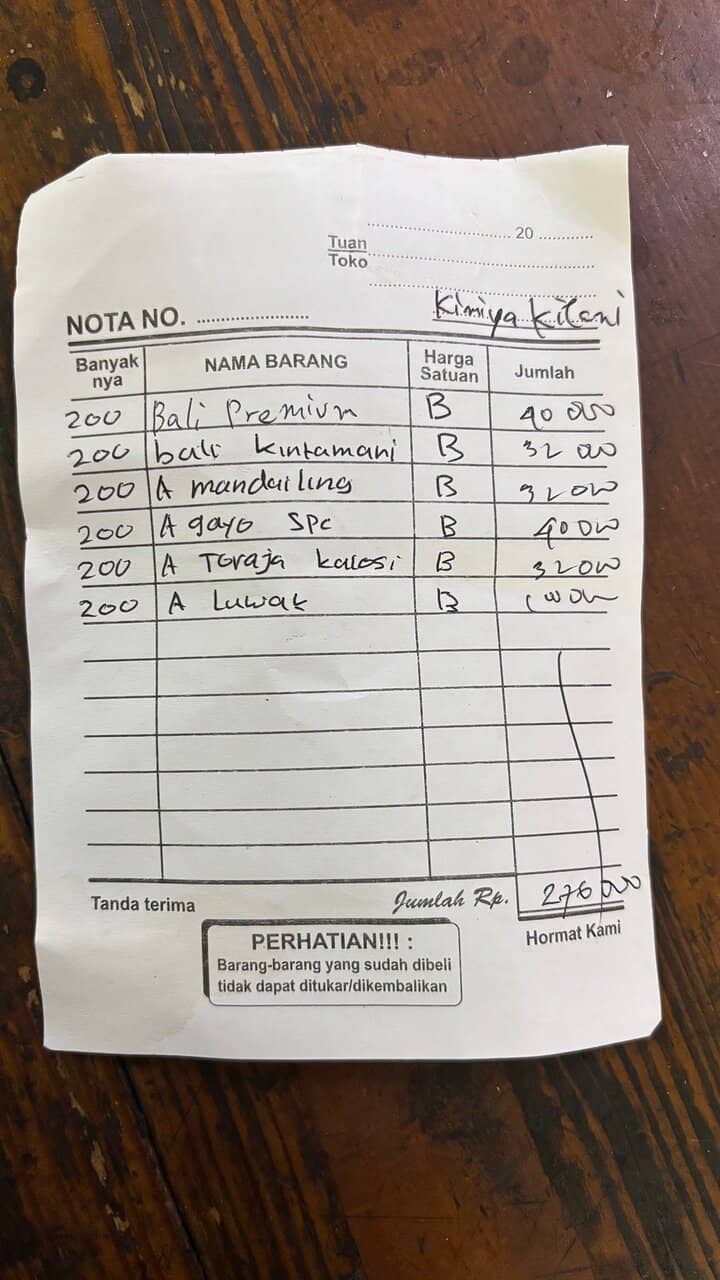 20
Tuan
Toko
Kimiya Kilani
NOTA NO.
Banyak nya NAMA BARANG Harga Satuan Jumlah
200 Bali Premium B 40 000
200 bali kintamani B 32 000
200 A mandailing B 32 000
200 A gayo spc B 40 000
200 A Toraja kalosi B 32 000
200 A Luwak B 100 000
Tanda terima Jumlah Rp. 276 000
Hormat Kami
PERHATIAN!!! :
Barang-barang yang sudah dibeli
tidak dapat ditukar/dikembalikan